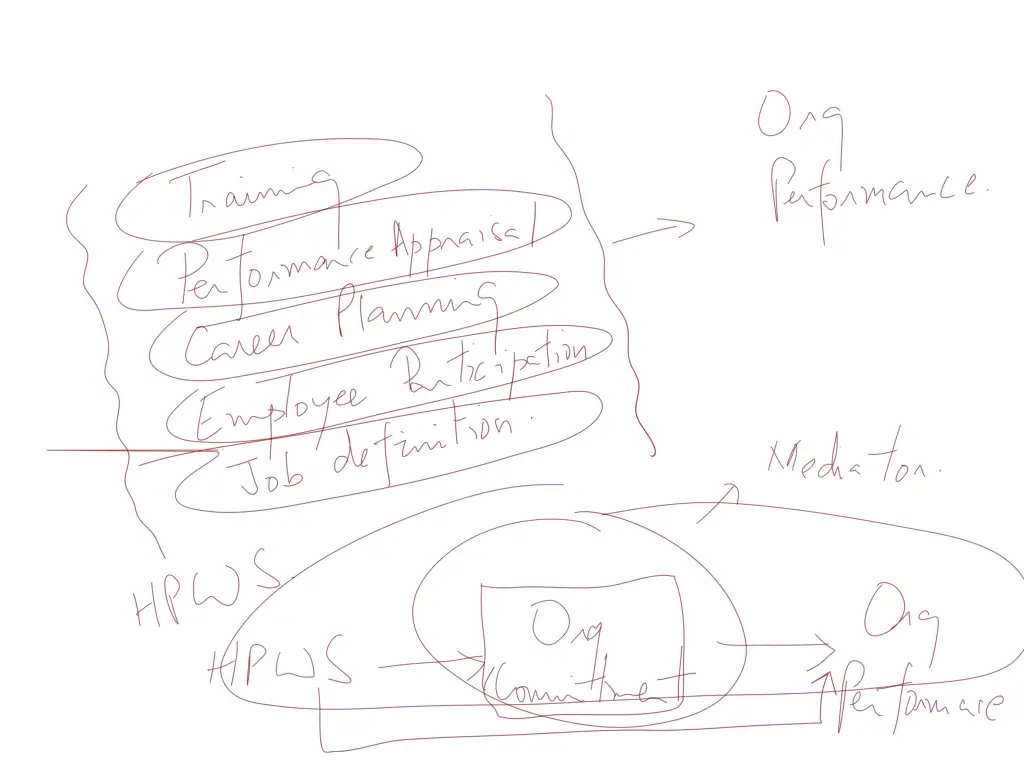 Org
Performance.
Training
Performance Appraisal
Career Planning
Employee Participation
Job definition.
Mediator.
HPWS
HPWS
Org
Commitment
Org
Performace